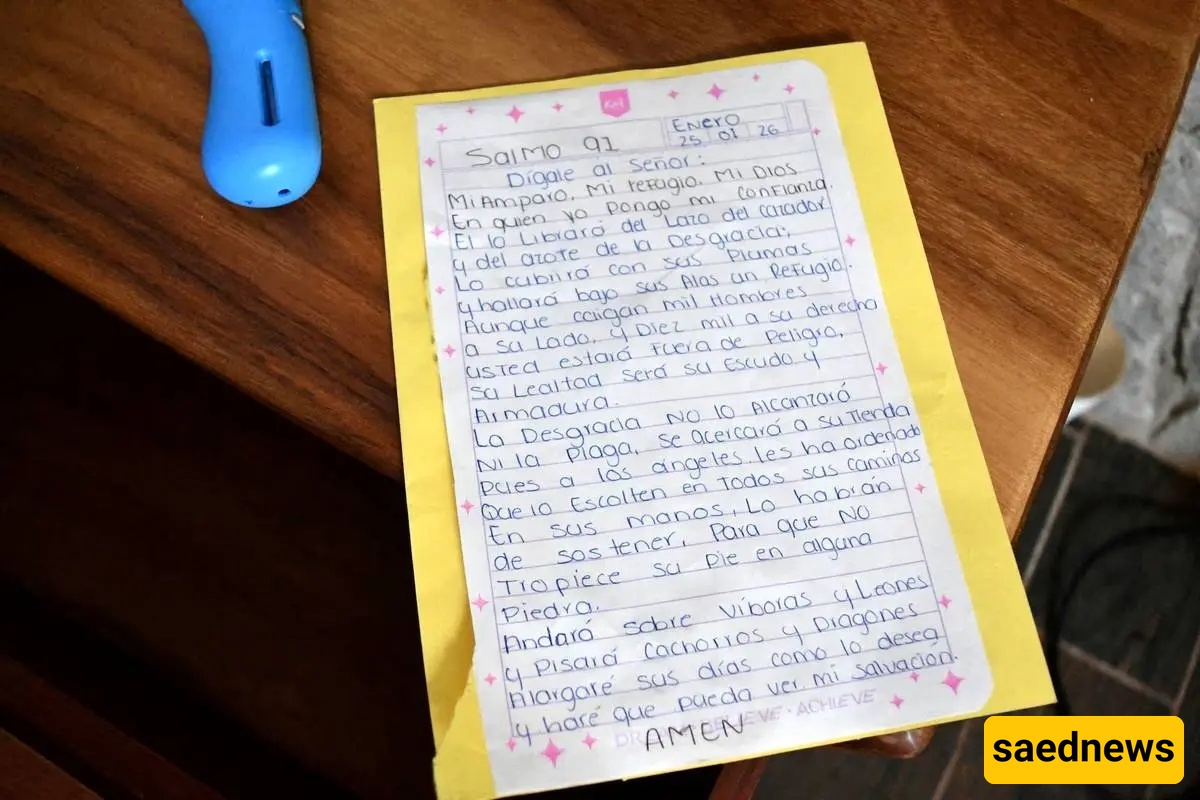 KM
Salmo 91
Enero
25 01 26
Dígale al Señor:
Mi Amparo, Mi refugio, Mi Dios
En quien yo pongo mi confianza.
El lo Librará del Lazo del cazador
y del azote de la Desgracia;
Lo cubrirá con sus Plumas
y hallará bajo sus Alas un Refugio.
Aunque caigan mil Hombres
a su Lado, y Diez mil a su derecha
usted estará Fuera de Peligro,
su Lealtad será su Escudo y
Armadura.
La Desgracia NO lo Alcanzará
Ni la Plaga, se acercará a su Tienda
pues a los ángeles les ha ordenado
Que lo Escolten en Todos sus caminos
En sus manos, Lo habrán
de sostener, Para que NO
Tropiece su Pie en alguna
Piedra.
Andará sobre Víboras y Leones
y pisará cachorros y Dragones
Alargaré sus días como lo desea
y haré que pueda ver mi salvación.
ACHIEVE
AMEN
saednews